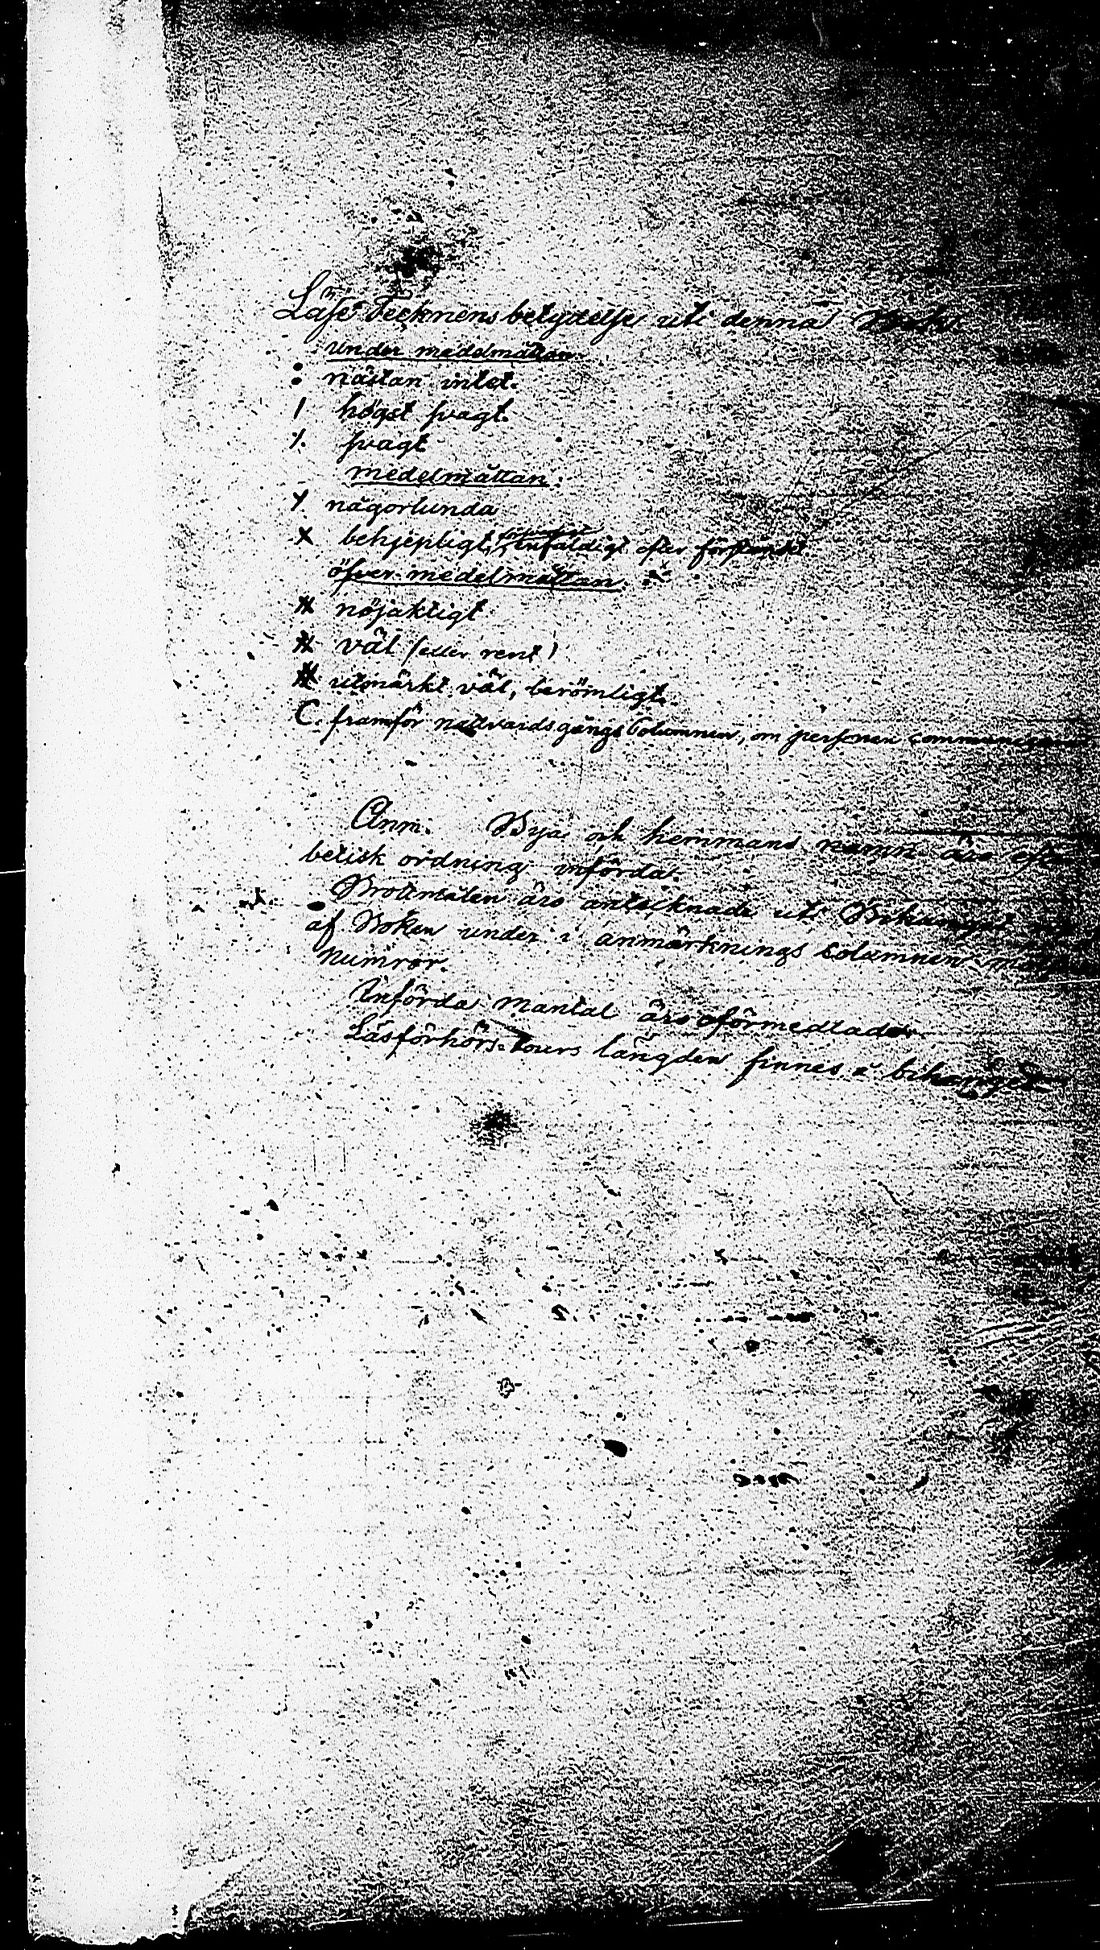 Läse Tecknens betydelse uti denna Bok.
under medelmåttan.
: nästan intet.
/ högst svagt.
svagt
medelmåttan.
någorlunda
x behjepligt, enfaldigt efter förståndet
öfver medelmåttan.
nöjaktigt
väl (eller rent)
utmärkt väl, berömligt.
C. framför nattvardsgångs Columnen, om personen
Anm. Byar och hemmans namn äro
betisk ordning införda.
Brottmålen äro antecknade uti Bihanget
af Boken under i anmärknings columnen
numror.
Införda mantal äro oförmedlade.
Läsförhörs-Tours längden finnes i bihanget